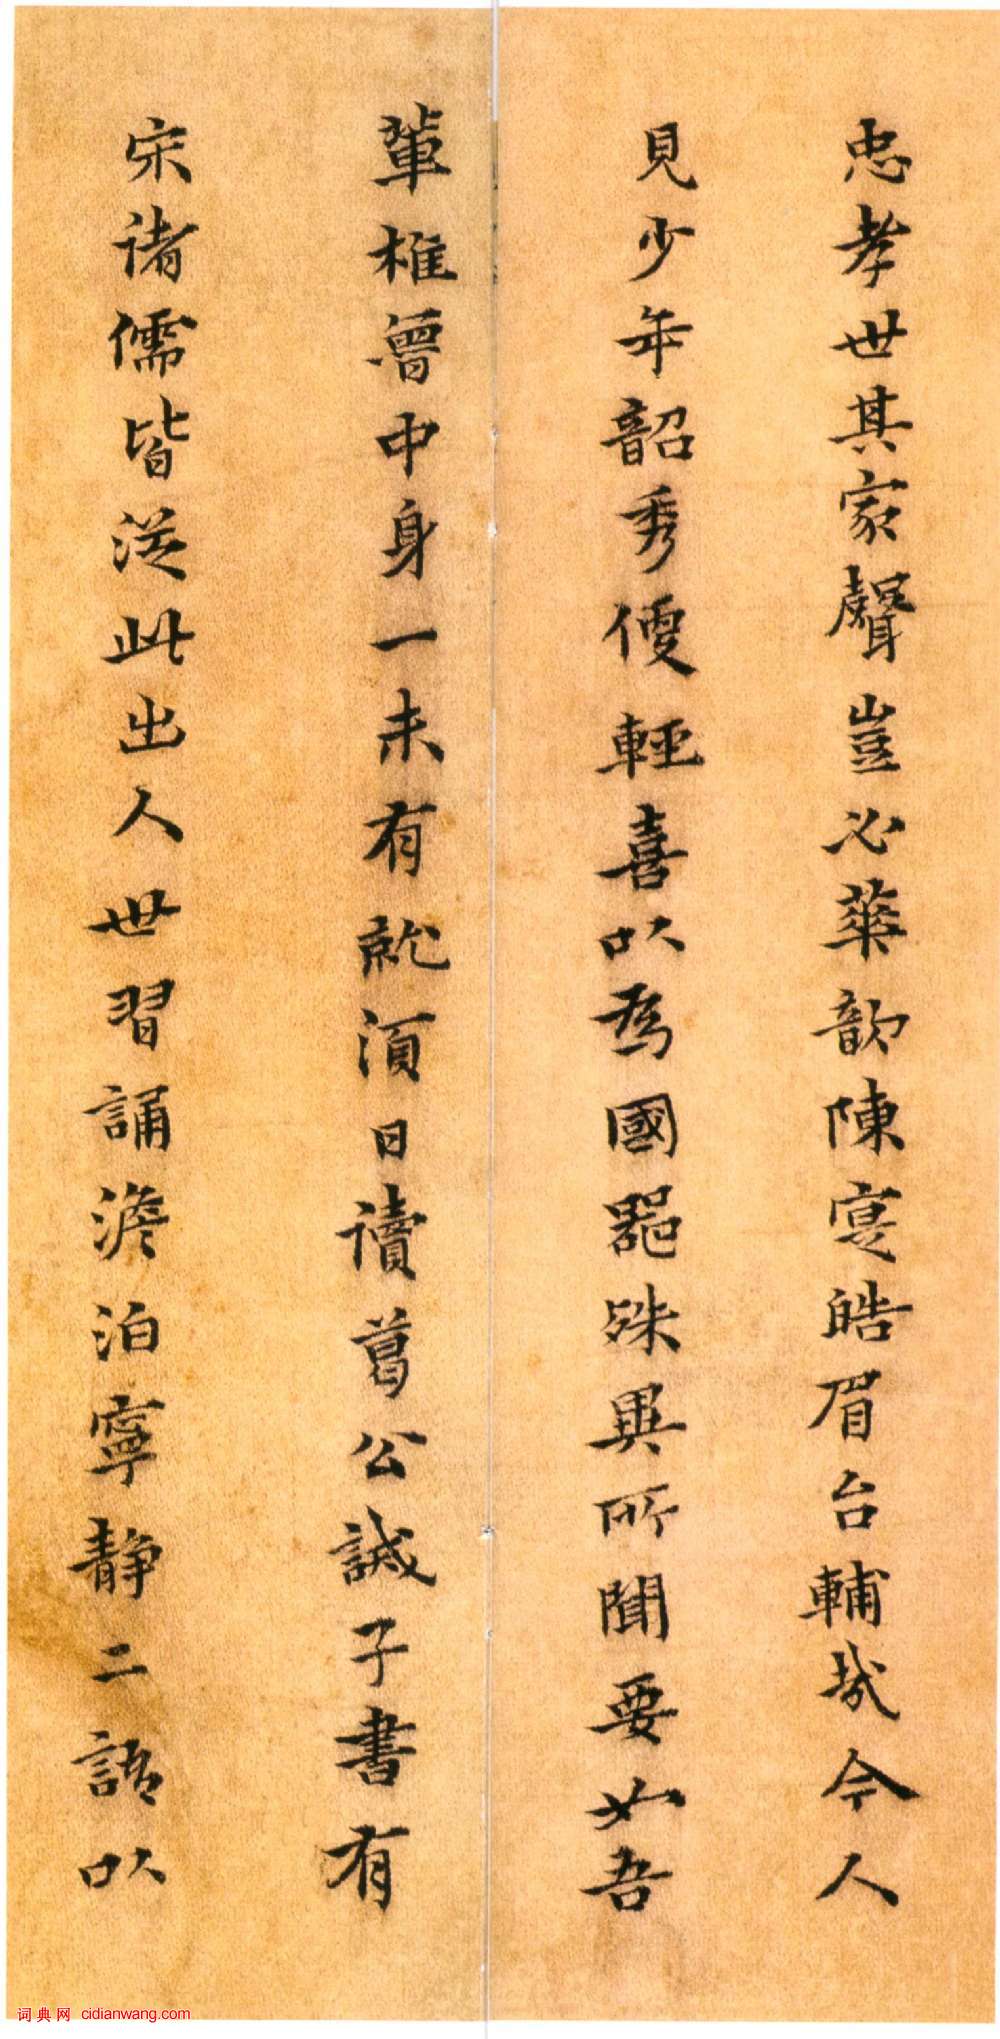 忠孝世其家聲豈必華歆陳寔皓眉台輔哉今人
見少年韶秀便輕喜以爲國器殊異所聞要如吾
輩椎魯中身一未有就須日讀葛公誡子書有
宋諸儒皆從此出人世習誦澹泊寧靜二語以
词典网 cidianwang.com